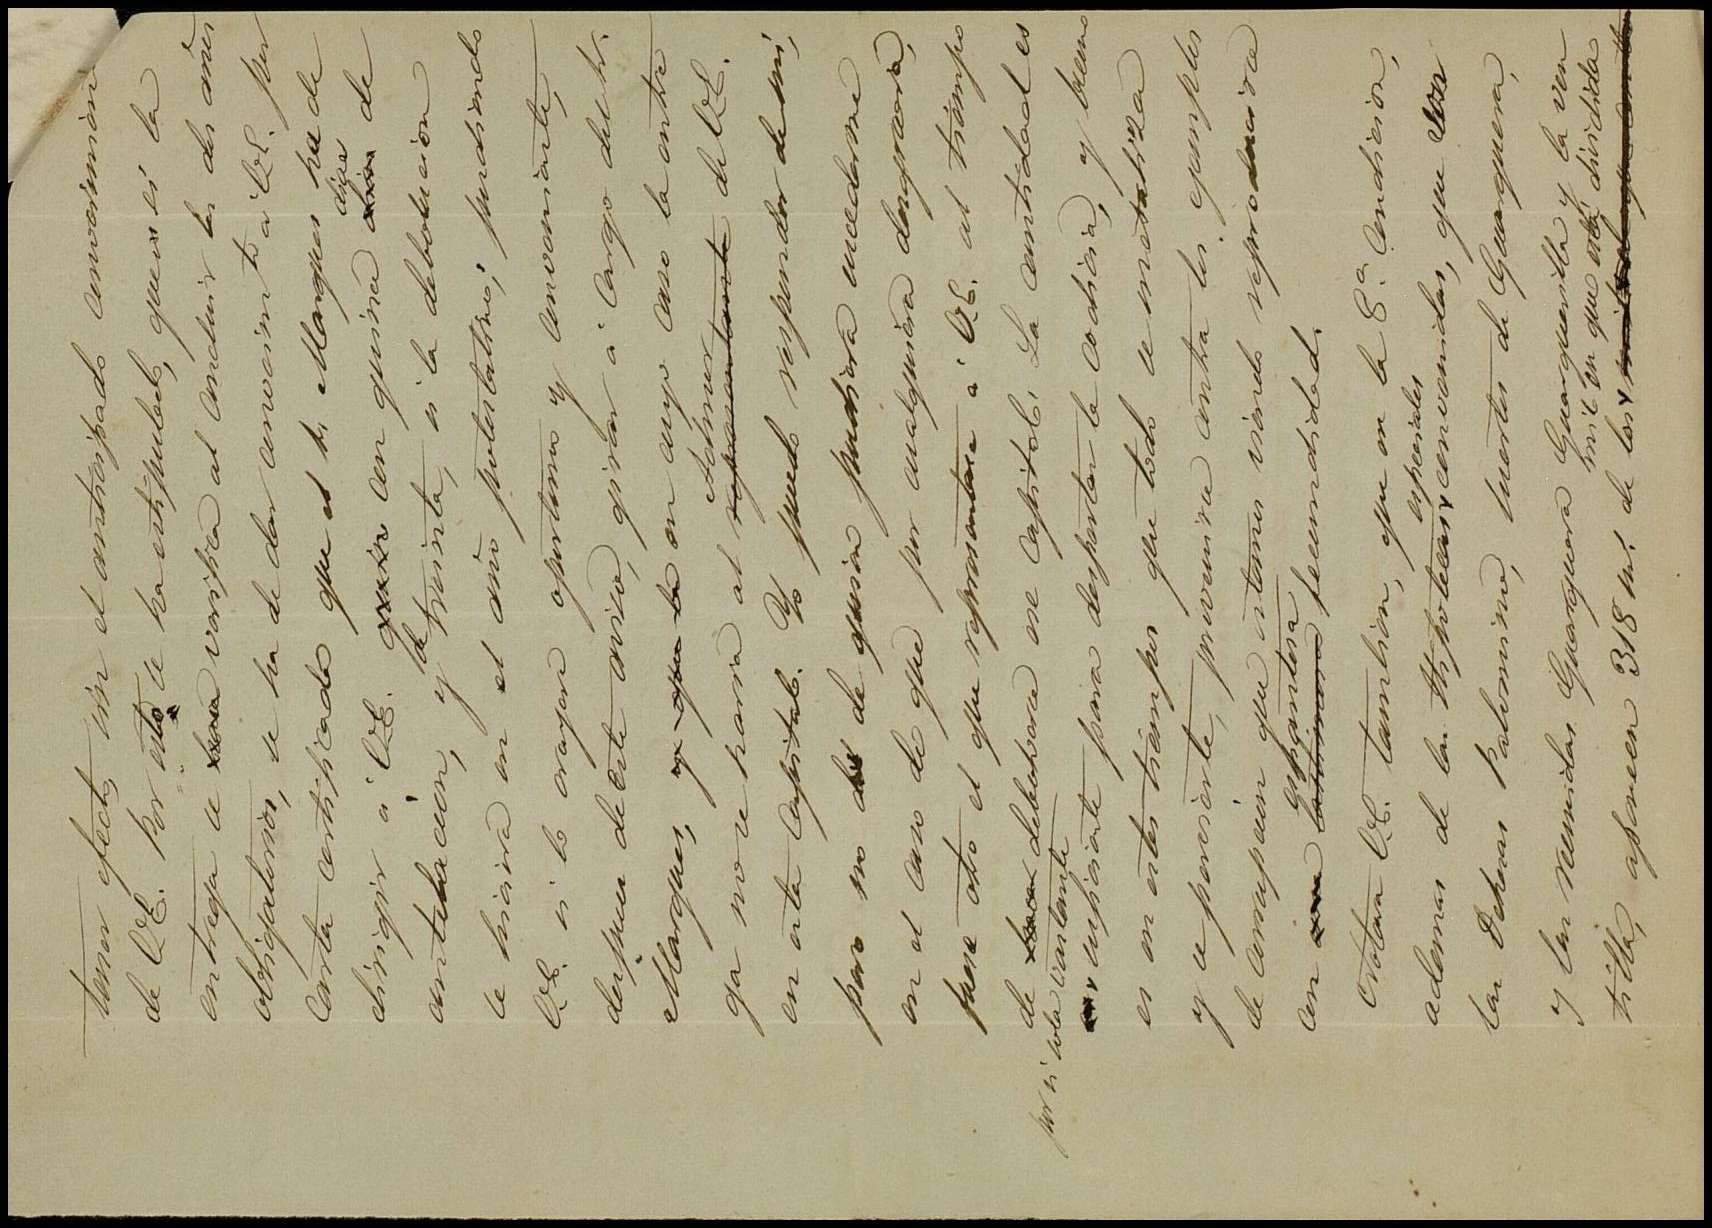 tener efecto, sin el anticipado consentimiento
de VE. Por esto se ha estipulado, que si la
entrega se verifica al concluir los dos años
obligatorios, se ha de dar conocimto a VE. por
Carta certificada que el Sr Marques ha de
dirigir a VE. con quince dias de
antelacion, y de treinta, si la debolucion
se hiciera en el año potestativo; pudiendo
VE. si lo creyere oportuno y conveniente,
despues de este aviso, girar a cargo del Sr.
Marques, en cuyo caso la entre
ga no se haria al Admor de VE.
en esta Capital. Yo puedo responder de mi,
pero no de quien pudiera sucederme
en el caso de que por cualquiera desgracia,
fuese otro el que representase a VE. al tiempo
de debolverse ese capital. La cantidad es
por si sola bastante
suficiente para despertar la codicia, y bueno
es en estos tiempos que todo se metaliza
y se pervierte, prevenirse contra los ejemplos
de corrupcion que estamos viendo reproducirse
con espantosa fecundidad.
Notara VE. tambien, que en la 8.ª Condicion,
ademas de las Hipotecas especiales convenidas, que son
las Dehesas Palomino, suertes de Guarguera,
y las reunidas Guarguera Guarguerilla y la ven
tilla, aparecen 318 de las mil en que está dividida